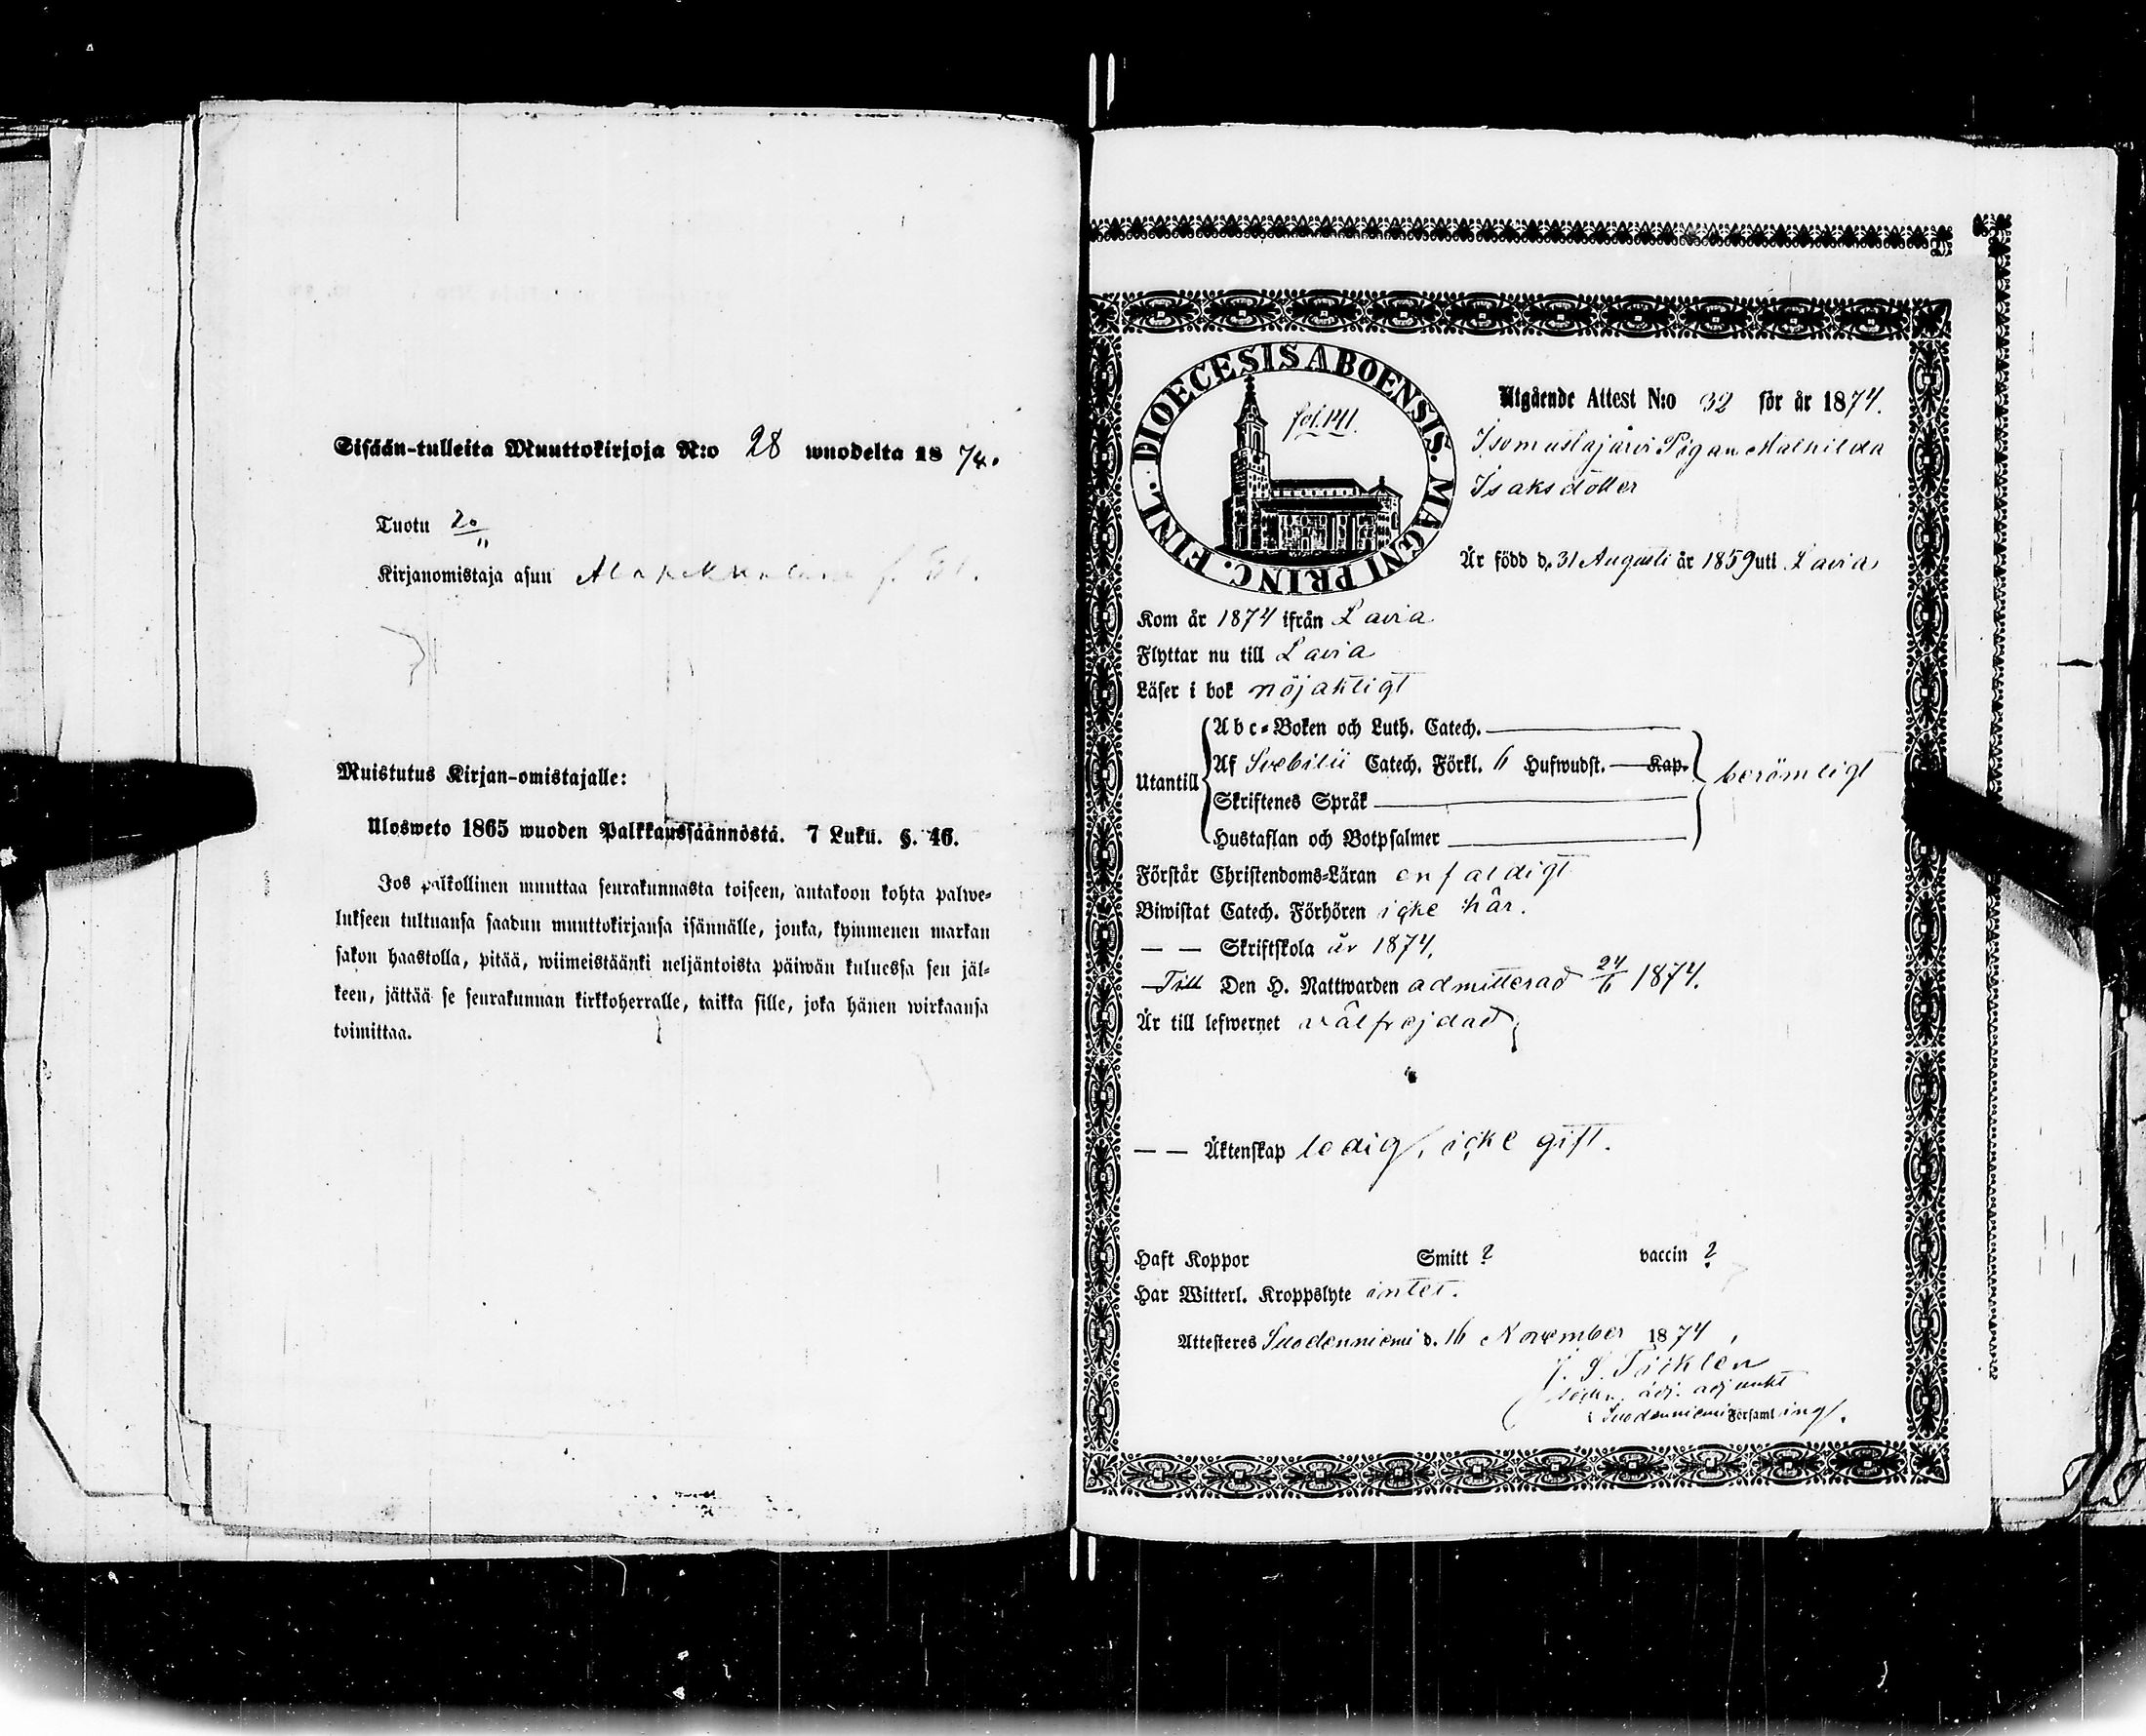 Sisään-tulleita Muuttokirjoja N:o 28 wuodelta 1874.
Tuotu 20/11
Kirjanomistaja asuu
Muistutus Kirjan-omistajalle:
Ulosweto 1865 wuoden Palkkaussäännöstä. 7 Luku. §. 46.
Jos palkollinen muuttaa seurakunnasta toiseen, antakoon kohta palwe-
lukseen tultuansa saadun muuttokirjansa isännälle, jonka, kymmenen markan
sakon haastolla, pitää, wiimeistäänki neljäntoista päiwän kuluessa sen jäl-
keen, jättää se seurakunnan kirkkoherralle, taikka sille, joka hänen wirkaansa
toimittaa.
DIOECESIS ABOENSIS. MAGNI PRINC. FINL.
fol. 141.
Utgående Attest N:o 32 för år 1874.
Pigan Mathilda
Isaksdotter
Är född d. 31 Augusti år 1859 uti Lavia
Kom år 1874 ifrån Lavia
Flyttar nu till Lavia
Läser i bok nöjaktigt
Utantill
Abc-Boken och Luth. Catech.
Af Svebilii Catech. Förkl. 6 Hufwudst. Kap.
Skriftenes Språk
Hustaflan och Botpsalmer
berömligt
Förstår Christendoms-Läran enfaldigt
Biwistat Catech. Förhören icke här.
— — Skriftskola år 1874.
Till Den H. Nattwarden admitterad 24/6 1874.
Är till lefwernet välfrejdad,
— — Äktenskap ledig, icke gift.
Haft Koppor Smitt ? vaccin ?
Har Witterl. Kroppslyte intet.
Attesteres Suodenniemi d. 16 November 1874,
adj. adjunkt
i Suodenniemi Församling.